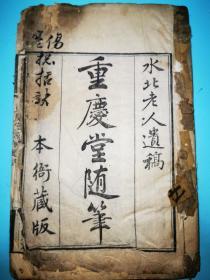 水北老人遺稿
重慶堂随筆
本衙藏版